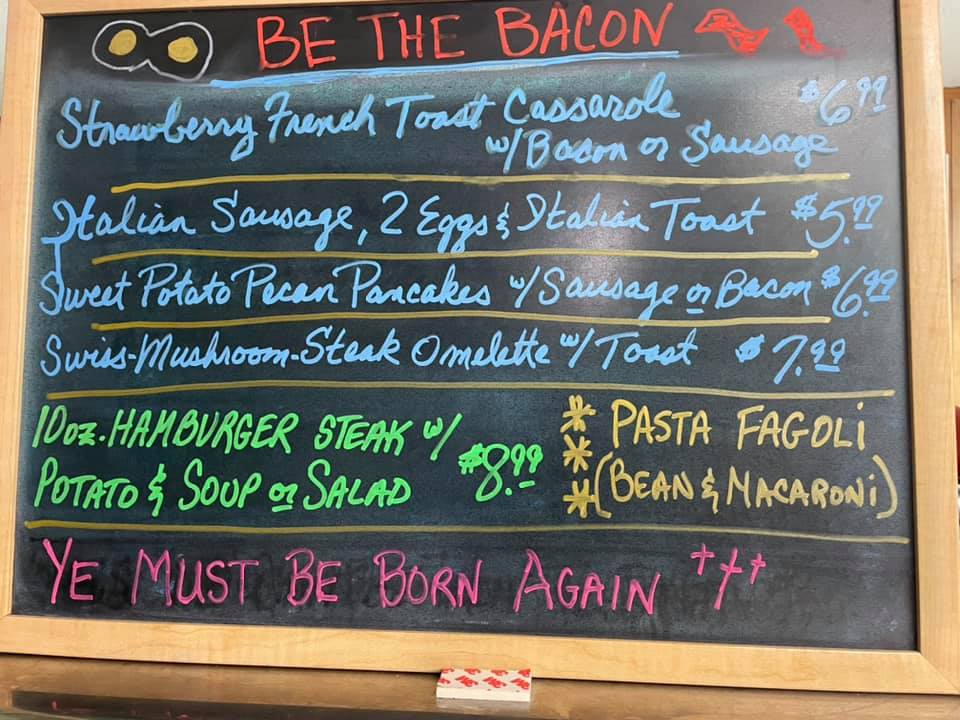 BE THE BACON
Strawberry French Toast Cassarole $6.99
w/Bacon or Sausage
Italian Sausage, 2 Eggs & Italian Toast $5.99
Sweet Potato Pecan Pancakes w/Sausage or Bacon $6.99
Swiss-Mushroom-Steak Omelette w/ Toast $7.99
10oz. HAMBURGER STEAK w/
POTATO & SOUP or SALAD $8.99
* PASTA FAGOLI
*
* (BEAN & MACARONI)
YE MUST BE BORN AGAIN